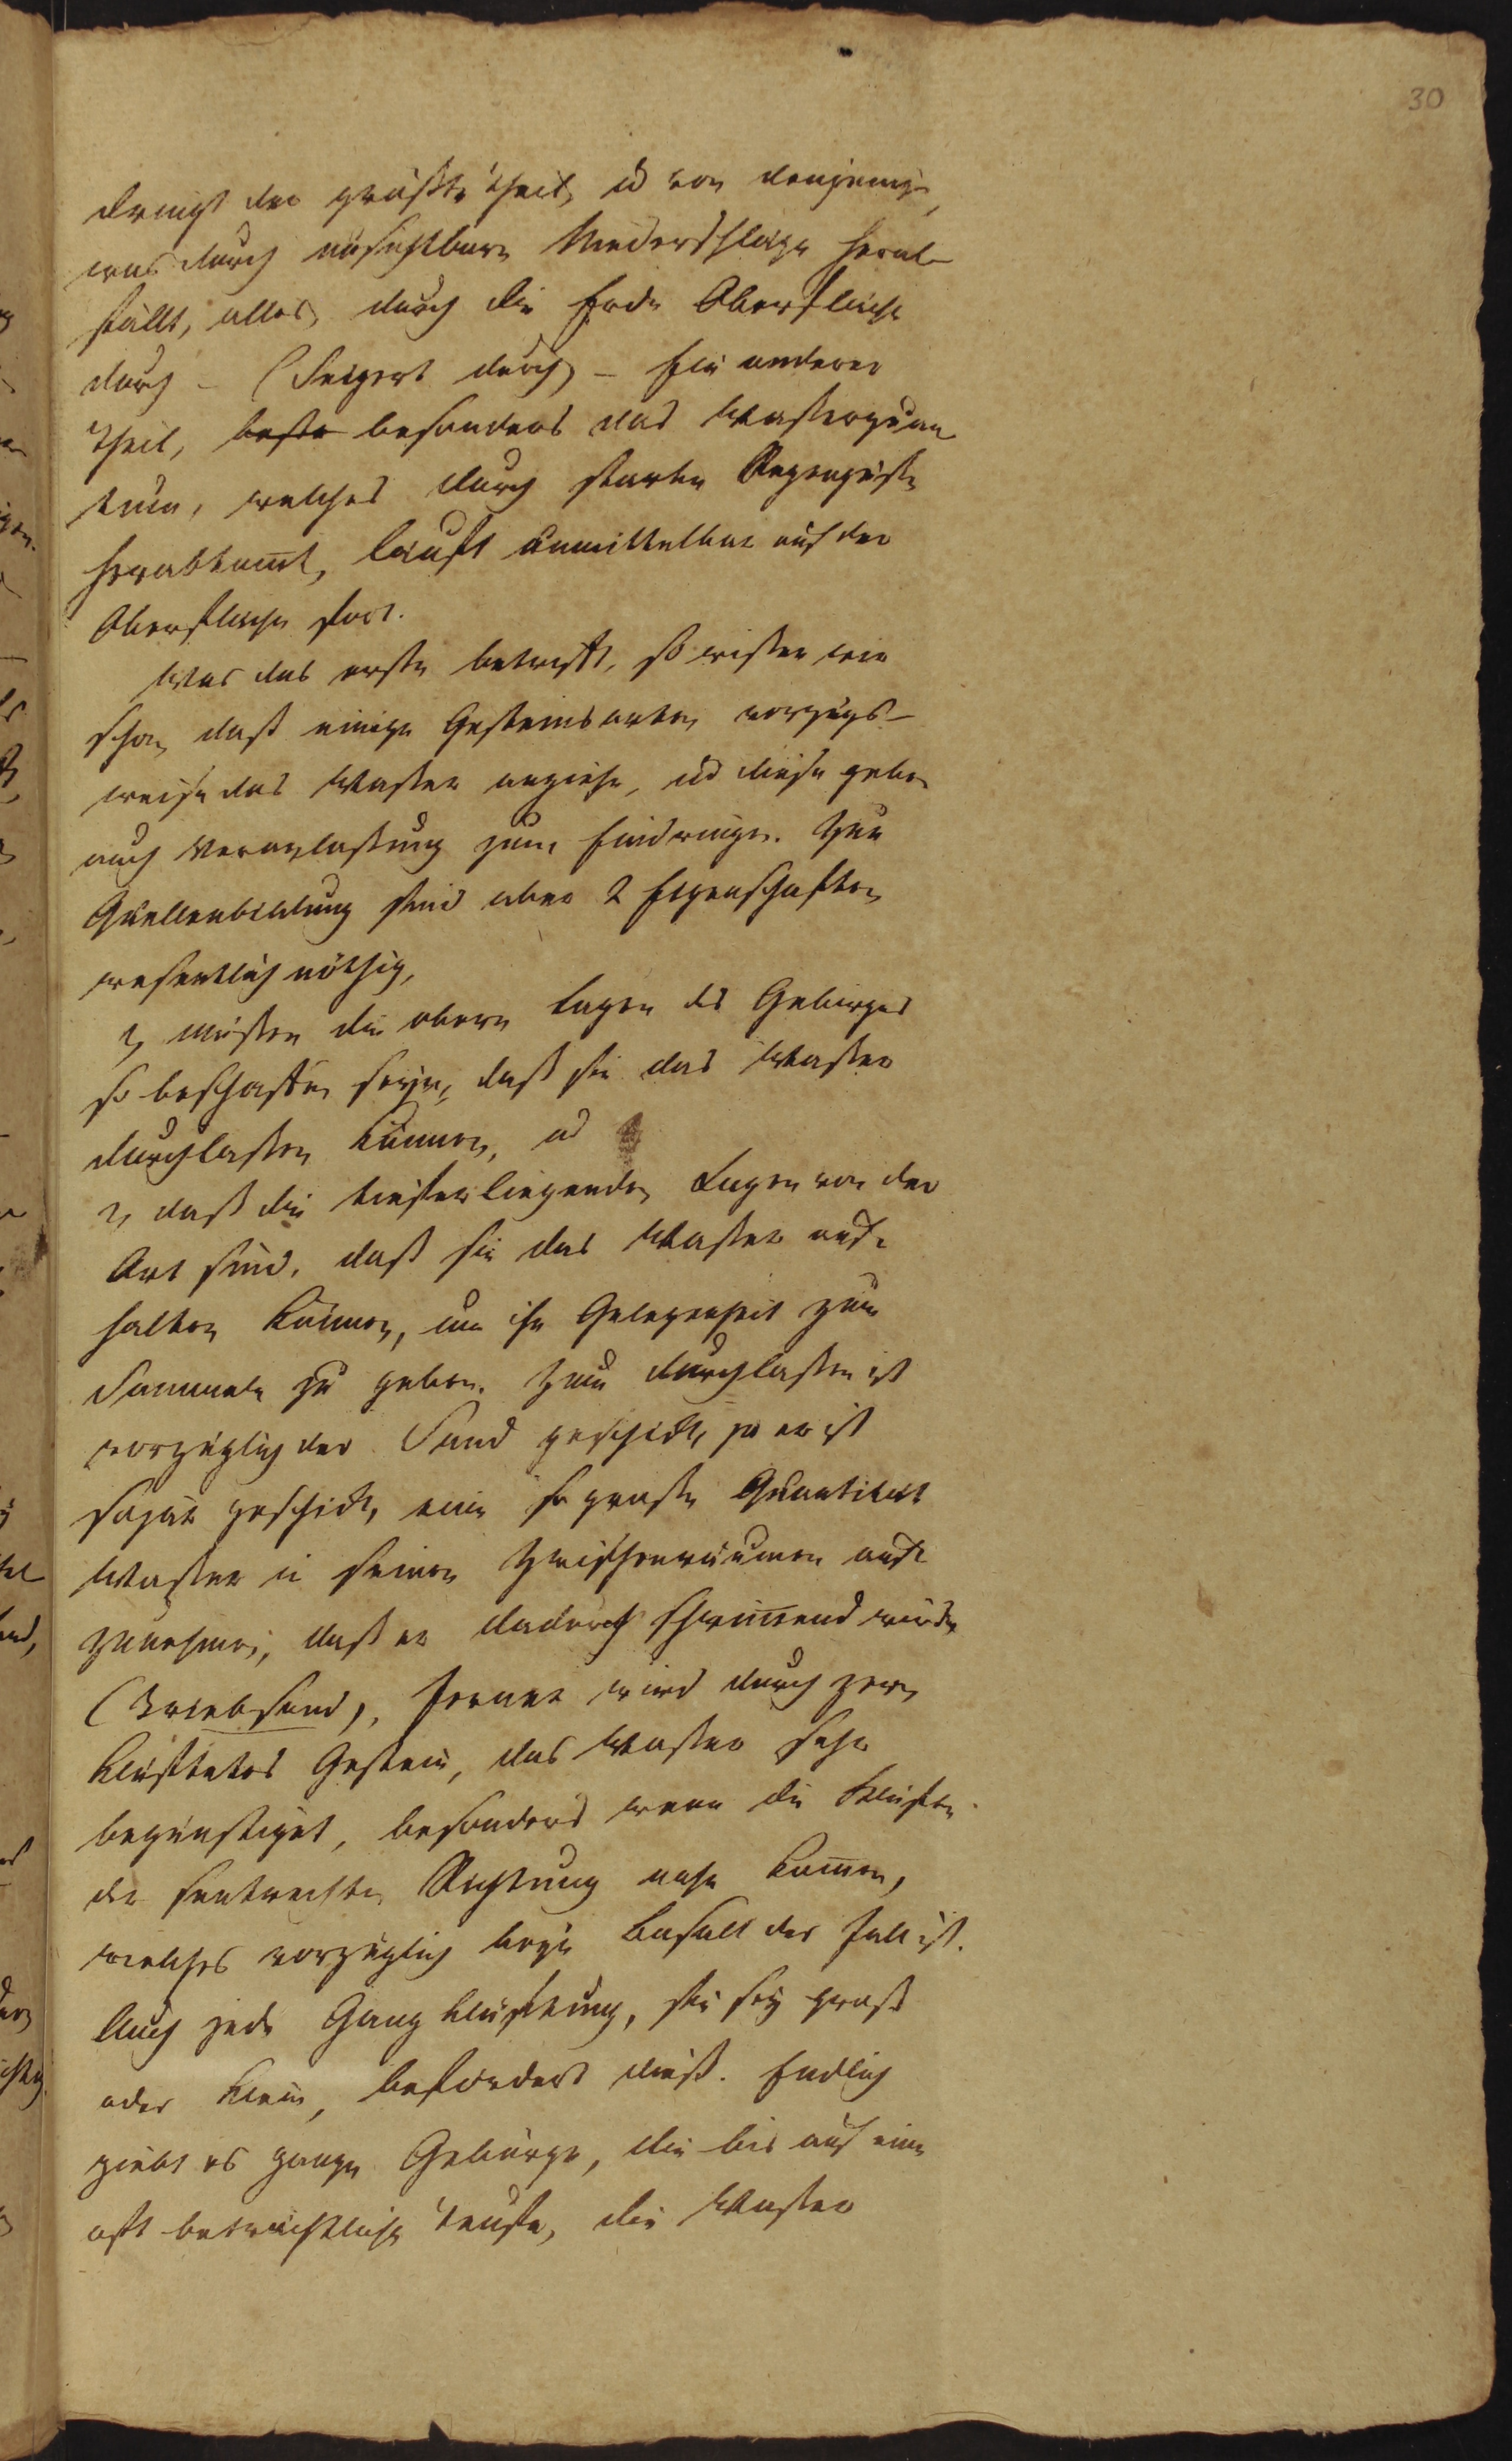 30
dringt der größte Theil, u von denjenige,
was durch unsichtbare Niederschläge herab-
fällt, alles durch die Erde Oberfläche
durch – (Seigert durch) – Ein anderer
Theil, beste besonders das Wasserquan
tum, welches durch starke Regengüße
herabkomt, läuft unmittelbar auf der
Oberfläche fort.
Was das erste betrifft, so wißen wir
schon, daß einige Gesteinsarten vorzugs-
weise das Waßer anziehe, und diese geben
auch Veranlaßung zum Eindringen. Zur
Quellenbildung sind aber 2 Eigenschaften
wesentlich nöthig,
1, müßen die obern Lagen des Gebirges
so beschaffen seyn, daß sie das Waßer
durchlaßen können, u
2, daß die tieferliegenden Lagen von der
Art sind, daß sie das Waßer auf-
halten können, um ihm Gelegenheit zum
Sammeln zu geben. Zum durchlaßen ist
vorzüglich der Sand geschickt, ja er ist
sogar geschickt, eine so große Quantitaet
Waßer in seinen Zwischenräumen auf-
zunehmen, daß er dadurch schwimend würde
(Triebsand), Ferner wird durch zer-
klüftetes Gestein, das Waßer sehr
begünstiget, besonders wenn die Klüften
der senkrechten Richtung nahe komen,
welches vorzüglich beym Basalt der Fall ist.
Auch jede Gang klüftung, sie sey groß
oder klein, befördert dieß. Endlich
giebt es ganze Gebürge, die bis auf eine
oft beträchtliche Teufe, die Waßer